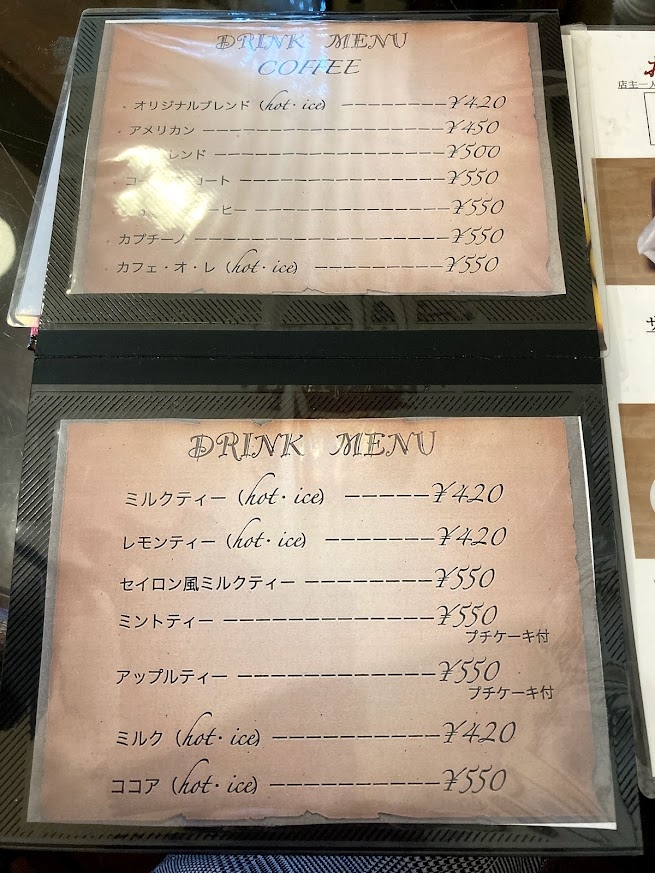 DRINK MENU
COFFEE
・オリジナルブレンド (hot・ice) ---------¥420
・アメリカン ---------------------¥450
レンド ---------------------¥500
コート ------------------¥550
ーヒー -----------------¥550
・カプチーノ ---------------------¥550
・カフェ・オ・レ (hot・ice) ----------¥550
DRINK MENU
ミルクティー (hot・ice) -----¥420
レモンティー (hot・ice) -------¥420
セイロン風ミルクティー --------¥550
ミントティー -------------¥550
プチケーキ付
アップルティー ------------¥550
プチケーキ付
ミルク (hot・ice) ----------¥420
ココア (hot・ice) ----------¥550